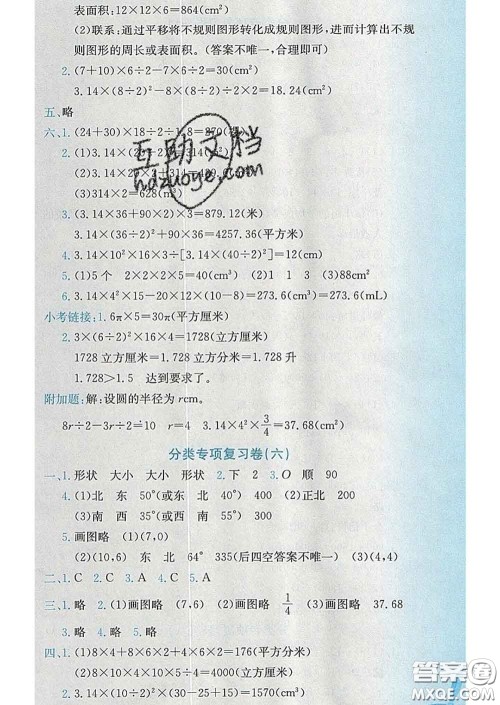 表面积:12×12×6=864(cm²)
(2)联系:通过平移将不规则图形转化成规则图形,进而计算出不规
则图形的周长或表面积。(答案不唯一,合理即可)
2.(7+10)×6÷2-7×6÷2=30(cm²)
3.14×(8÷2)²-8×(8÷2)÷2×2=18.24(cm²)
五、略
六、1.(24+30)×18÷2÷1.8=270(
2.(1)3.14×(20÷2)²=314(cm²)
(2)3.14×
(3)314×2=628(cm²)
3.(3.14×36+90×2)×3=879.12(米)
3.14×(36÷2)²+36×90=4257.36(平方米)
4.3.14×10²×2×3÷[3.14×(40÷2)²]=1.5(cm)
5.(1)5个 2×2×2×5=40(cm³) (2)1 1 3 (3)88cm²
6.3.14×(6÷2)²×15-20×12×(10-8)÷2×2
小考链接:1.6π×5=30π(平方厘米)
2.3×(6÷2)²×16×4=1728(立方厘米)
1728立方厘米=1.728立方分米=1.728升
1.728>1.5 达到要求了。
附加题:解:设圆的半径为rcm。
8r÷2-3r÷2=10 r=4 3.14×4²×3/4=37.68(cm²)
分类专项复习卷(六)
一、1.形状 大小 大小 形状 2.下 2 3.O 顺 90
4.(1)北 东 50°(或东 北 40°) 400 (2)正北 200
(3)南 西 35°(或西 南 55°) 300
5.画图略 (1)(7,0)
(2)(10,6) 东 北 64° 335(后四空答案不唯一) (3)(4,4)
二、1.C 2.C 3.A 4.C 5.A
三、1.略 2.(1)画图略 (7,6) (2)画图略 1/4 (3)画图略 37.68
3.略 4.略 5.略
四、1.(1)8×4+8×6×2+4×6×2=176(平方分米)
(2)8×10×4×10×5÷4=4000(立方厘米)
2.3.14×(20÷2)²×(30-25+15)÷2=1570(cm³)
互助文档
hdzuoye.com
答案圈
MXQE.COM